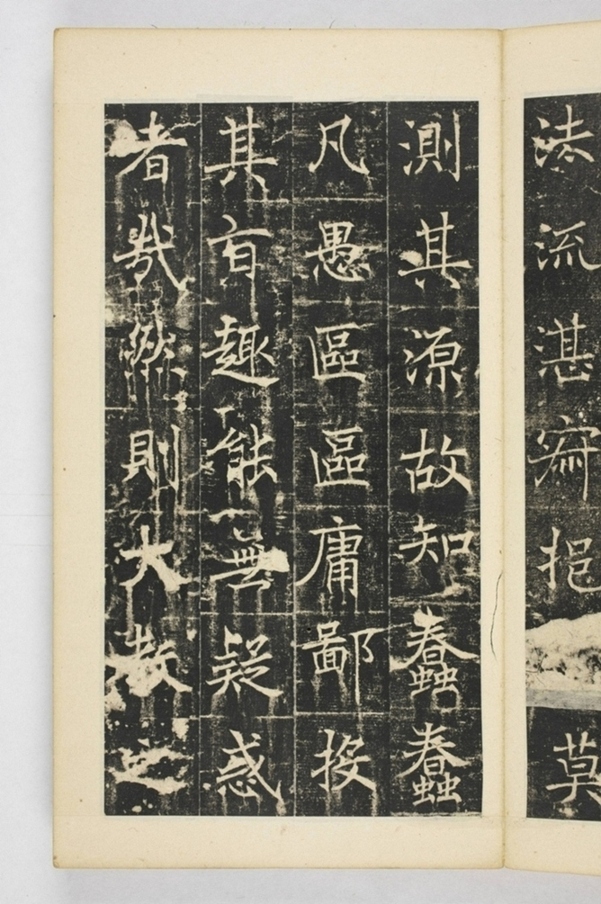 法流湛寂挹莫
測其源故知蠢蠢
凡愚區區庸鄙投
其旨趣能無疑惑
者哉然則大教之